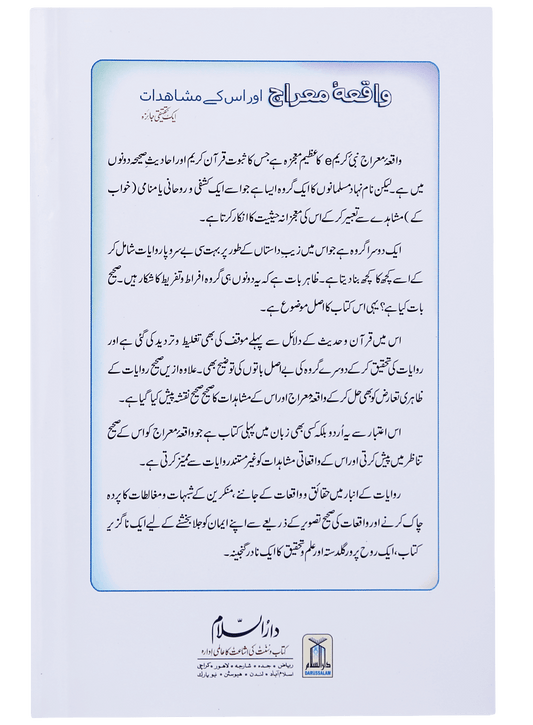 واقعۂ معراج اور اس کے مشاھدات
ایک تحقیقی جائزہ
واقعۂ معراج نبی کریم e کا عظیم معجزہ ہے جس کا ثبوت قرآن کریم اور احادیثِ صحیحہ دونوں
میں ہے۔ لیکن نام نہاد مسلمانوں کا ایک گروہ ایسا ہے جو اسے ایک کشفی و روحانی یا منامی (خواب
کے) مشاہدے سے تعبیر کر کے اس کی معجزانہ حیثیت کا انکار کرتا ہے۔
ایک دوسرا گروہ ہے جو اس میں زیبِ داستاں کے طور پر بہت سی بے سروپا روایات شامل کر
کے اسے کچھ کا کچھ بنا دیتا ہے۔ ظاہر بات ہے کہ یہ دونوں ہی گروہ افراط و تفریط کا شکار ہیں۔ صحیح
بات کیا ہے؟ یہی اس کتاب کا اصل موضوع ہے۔
اس میں قرآن و حدیث کے دلائل سے پہلے موقف کی بھی تغلیط و تردید کی گئی ہے اور
روایات کی تحقیق کر کے دوسرے گروہ کی بے اصل باتوں کی توضیح بھی۔ علاوہ ازیں صحیح روایات کے
ظاہری تعارض کو بھی حل کر کے واقعۂ معراج اور اس کے مشاہدات کا صحیح صحیح نقشہ پیش کیا گیا ہے۔
اس اعتبار سے یہ اُردو بلکہ کسی بھی زبان میں پہلی کتاب ہے جو واقعۂ معراج کو اس کے صحیح
تناظر میں پیش کرتی اور اس کے واقعاتی مشاہدات کو غیر مستند روایات سے ممیّز کرتی ہے۔
روایات کے انبار میں حقائق و واقعات کے جاننے، منکرین کے شبہات و مغالطات کا پردہ
چاک کرنے اور واقعات کی صحیح تصویر کے ذریعے سے اپنے ایمان کو جلا بخشنے کے لیے ایک ناگزیر
کتاب، ایک روح پرور گلدستہ اور علم و تحقیق کا ایک نادر گنجینہ۔
دارالسلام
کتاب و سنت کی اشاعت کا عالمی ادارہ
ریاض • جدہ • شارجہ • لاہور • کراچی
اسلام آباد • لندن • ہیوسٹن • نیو یارک
دارالسلام
DARUSSALAM